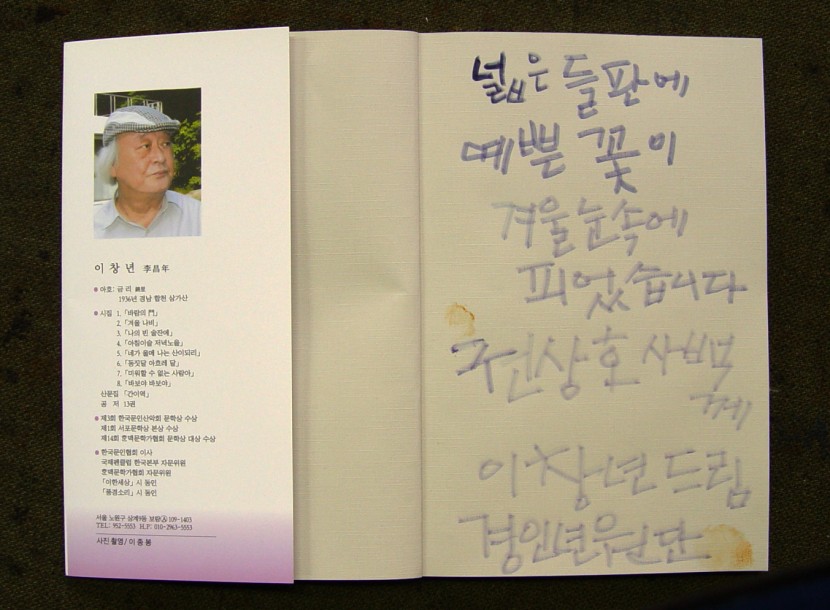 이창년 李昌年
아호: 금리
1936년 경남 합천 삼가산
시집 1. 「바람의 門」
2. 「겨울 나비」
3. 「나의 빈 술잔에」
4. 「아침이슬 저녁노을」
5. 「네가 울며 나는 산이되리」
6. 「동짓달 아흐레 달」
7. 「미워할 수 없는 사람아」
8. 「바보야 바보야」
산문집 「간이역」
공 저 13권
제3회 한국문인산악회 문학상 수상
제1회 서포문학상 본상 수상
제14회 문학가협회 문학상 대상 수상
한국문인협회 이사
국제펜클럽 한국본부 자문위원
문학가협회 자문위원
「이한세상」 시 동인
「풍경소리」 시 동인
서울 노원구 상계9동 보람 109-1403
TEL: 952-5553 H.P: 010-2963-5553
사진 촬영/이 종 봉
넓은 들판에
예쁜 꽃이
겨울 눈속에
피었습니다
권상호 사백
께
이창년 드림
경인년 원단